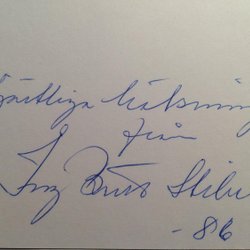 Hjärtliga hälsningar
från
Ing Britt Stibe
- 86